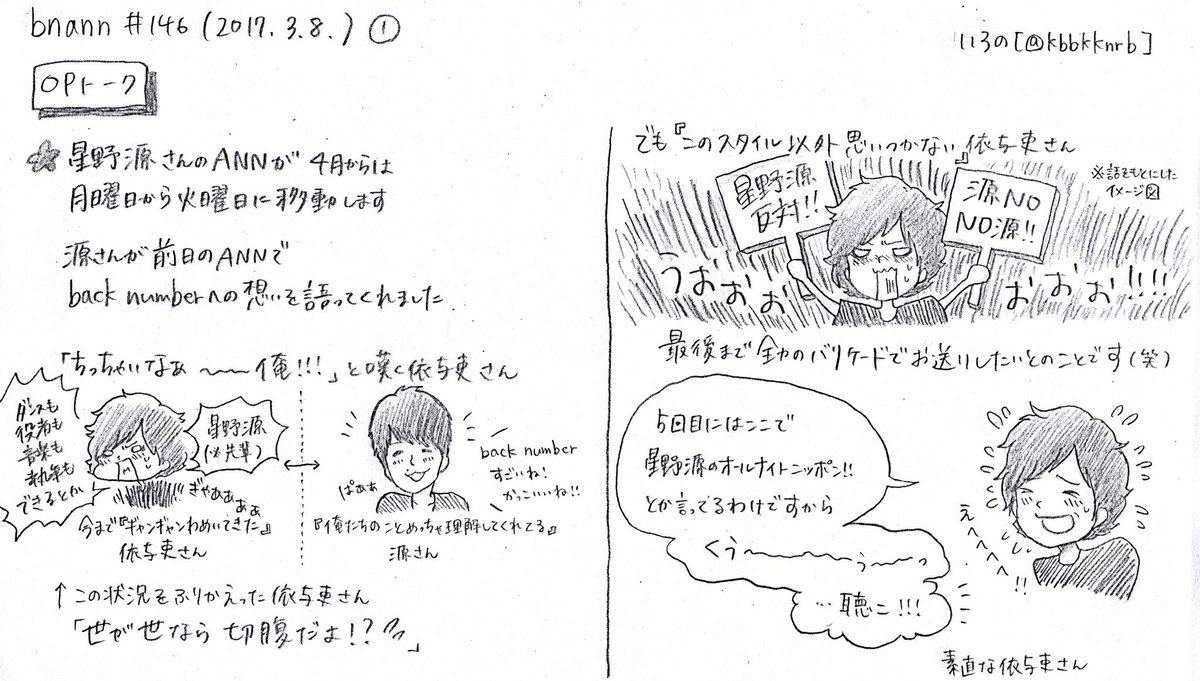 bnann #146 (2017.3.8.) ①
いろの[@kbbkknrb]
OPトーク
☆ 星野源さんのANNが 4月からは
月曜日から火曜日に移動します
源さんが前日のANNで
back numberへの想いを語ってくれました
「ちっちゃいなぁ 〜〜〜俺!!!」と嘆く依与吏さん
ダンスも
役者も
音楽も
執筆も
できるとか
星野源
(※先輩)
ぎゃああぁぁぁ
今まで『ギャンギャンわめいてきた』
依与吏さん
↔
ぱぁぁ
back number
すごいね!
かっこいいね!!
『俺たちのことめっちゃ理解してくれてる』
源さん
↑この状況をふりかえった依与吏さん
「世が世なら 切腹だよ!?」
でも『このスタイル以外思いつかない』依与吏さん
※話をもとにした
イメージ図
星野源
反対!!
源NO
NO源!!
うおぉぉ
おぉぉ!!!!
最後まで全力のバリケードでお送りしたいとのことです(笑)
5回目にはここで
星野源のオールナイトニッポン!!
とか言ってるわけですから
くぅ〜〜〜〜ぅ〜〜っ
…聴こ!!!
えへへへへ!!
素直な依与吏さん